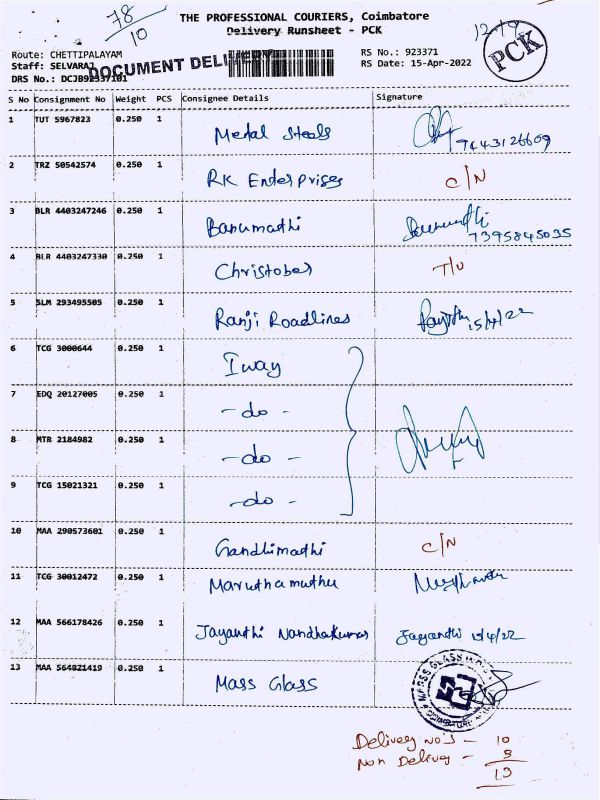 78
10
THE PROFESSIONAL COURIERS, Coimbatore
Delivery Runsheet - PCK
PCK
Route: CHETTIPALAYAM
Staff: SELVARAJ
DRS No.: DCJB92337101
DOCUMENT DELIVERY
RS No.: 923371
RS Date: 15-Apr-2022
S No Consignment No Weight PCS Consignee Details Signature
1 TUT 5967823 0.250 1 Metal Steels 9443126609
2 TRZ 50542574 0.250 1 RK Enterprises C/N
3 BLR 4403247246 0.250 1 Banumathi 7395845035
4 BLR 4403247330 0.250 1 Christober T/U
5 SLM 293495505 0.250 1 Ranji Roadlines 15/4/22
6 TCG 3000644 0.250 1 Iway
7 EDQ 20127005 0.250 1 -do-
8 MTR 2184982 0.250 1 -do-
9 TCG 15021321 0.250 1 -do-
10 MAA 290573601 0.250 1 Gandhimathi C/N
11 TCG 30012472 0.250 1 Maruthamuthu
12 MAA 566178426 0.250 1 Jayanthi Nandhakumar Jayanthi 15/4/22
13 MAA 564821419 0.250 1 Mass Glass
Delivery no's - 10
Non Delivery - 3
13